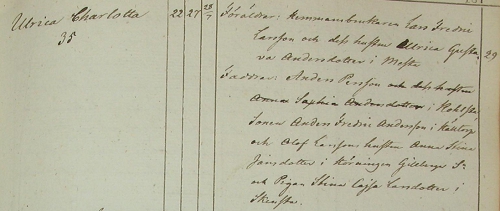 Ulrica Charlotta 22 27 28/7 Föräldrar: hemmansbrukaren Lars Fredric
35
Larsson och dess hustru Ullrica Gusta- 29
va Andersdotter i
Faddrar: Anders Persson och dess hustru
Anna Sophia Andersdotter i
Sonen Anders Fredric Andersson i
och Olof Larssons hustru Anna Stina
Jansdotter i Körningen Gillberga Sn
och Pigan Stina Cajsa Larsdotter i